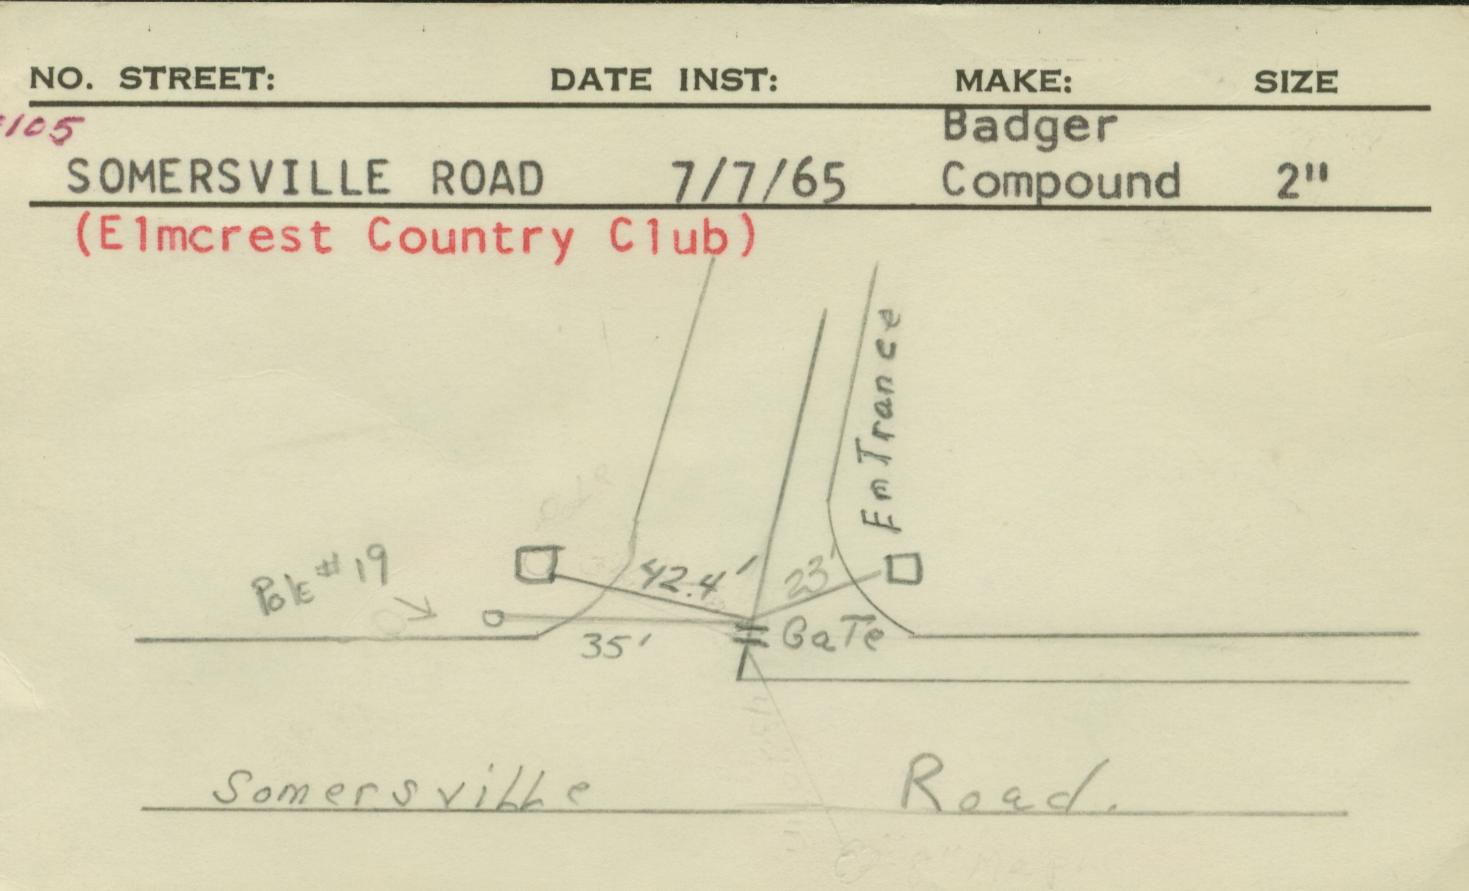 NO. STREET: DATE INST: MAKE: SIZE
105
Badger
SOMERSVILLE ROAD 7/7/65 Compound 2"
(Elmcrest Country Club)
EnTrance
Pole #19
42.4'
23'
35'
GaTe
Somersville Road.